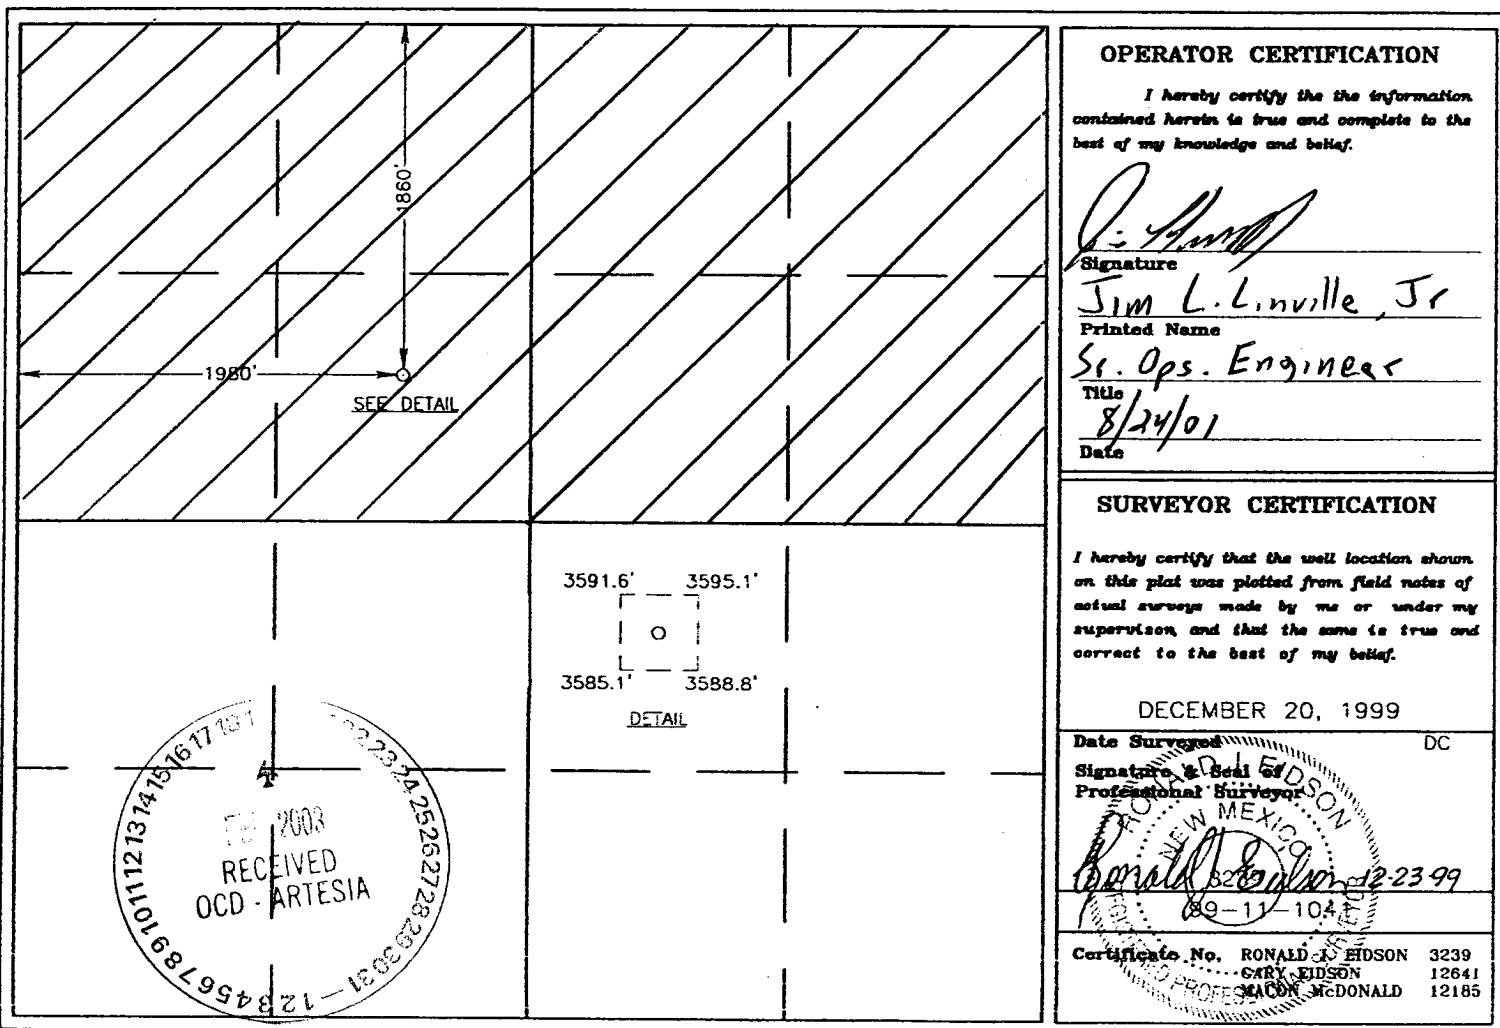 1860'
1980'
SEE DETAIL
3591.6' 3595.1'
3585.1' 3588.8'
DETAIL
2003
RECEIVED
OCD - ARTESIA
1 2 3 4 5 6 7 8 9 10 11 12 13 14 15 16 17 18 1
22 23 24 25 26 27 28 29 30 31
OPERATOR CERTIFICATION
I hereby certify the the information
contained herein is true and complete to the
best of my knowledge and belief.
Signature
Jim L. Linville, Jr
Printed Name
Sr. Ops. Engineer
Title
8/24/01
Date
SURVEYOR CERTIFICATION
I hereby certify that the well location shown
on this plat was plotted from field notes of
actual surveys made by me or under my
supervison, and that the same is true and
correct to the best of my belief.
DECEMBER 20, 1999
Date Surveyed DC
Signature & Seal of
Professional Surveyor
RONALD J. EIDSON
NEW MEXICO
3239
REGISTERED PROFESSIONAL SURVEYOR
Ronald J Eidson 12-23-99
99-11-1041
Certificate No. RONALD J. EIDSON 3239
GARY EIDSON 12641
MACON McDONALD 12185